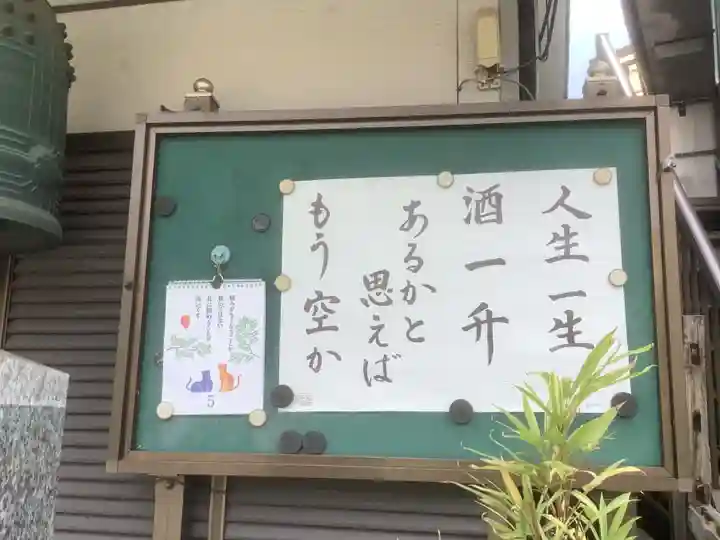 人生一生
酒一升
あるかと
思えば
もう空か
5